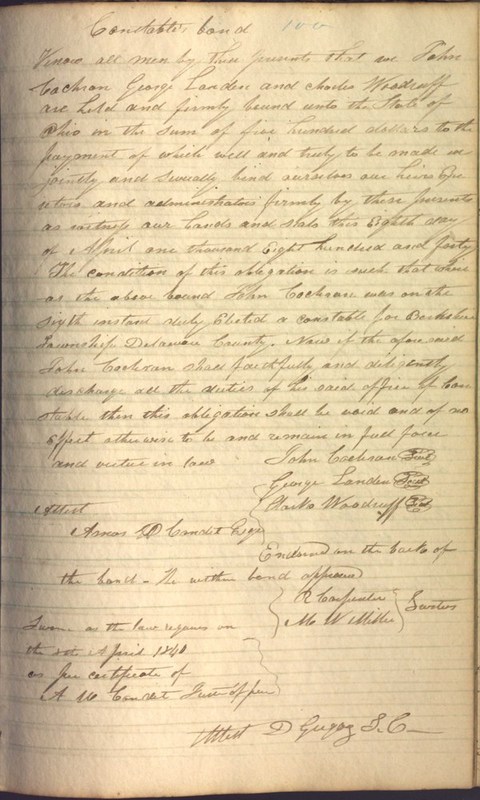 Constables bond 100
Know all men by these presents that we John
Cochran George Landen and Charles Woodruff
are held and firmly bound unto the State of
Ohio in the sum of five hundred dollars to the
payment of which well and truly to be made we
jointly and severally bind ourselves our heirs Exe
cutors and administrators firmly by these presents
as witness our hands and seals this Eighth day
of April one thousand Eight hundred and forty
The condition of this obligation is such that
as the above bound John Cochran was on the
sixth instant duly Elected a constable for Berkshire
Township Delaware County. Now if the aforesaid
John Cochran shall faithfully and diligently
discharge all the duties of his said office of Con
stable then this obligation shall be void and of no
Effect otherwise to be and remain in full force
and virtue in law John Cochran Seal
George Landen Seal
Woodruff Seal
Attest
Amos Condit Esqr
Endorsed on the back of
the bond - The within bond approved
Carpenter
M W Miller
Trustees
Sworn as the law requires on
the 8th April 1840
as per certificate of
A Condit
Attest D Gregory T.C.